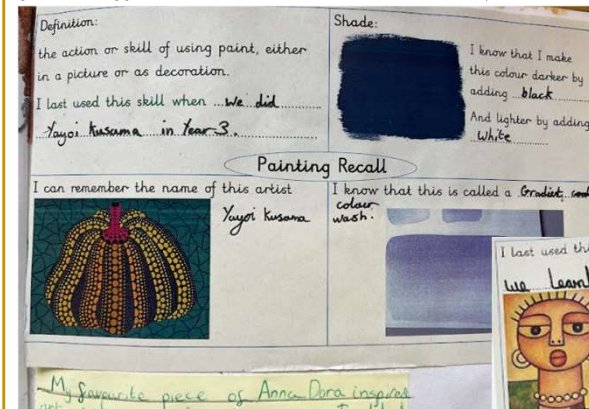 Definition:
the action or skill of using paint, either
in a picture or as decoration.
I last used this skill when ...we did
Yayoi Kusama in Year 3.
Shade:
I know that I make
this colour darker by
adding ...black
And lighter by adding
white
Painting Recall
I can remember the name of this artist
Yayoi Kusama
I know that this is called a
colour
wash.
I last used thi
we learn
My favourite piece of Anna Dora inspired